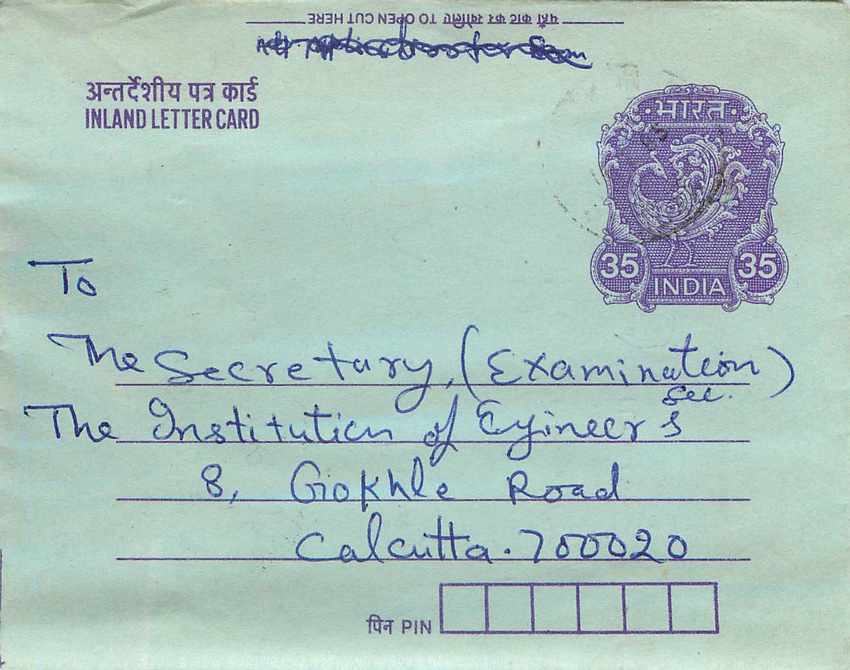 यहाँ काट कर खोलिए TO OPEN CUT HERE
अन्तर्देशीय पत्र कार्ड
INLAND LETTER CARD
भारत
35 35
INDIA
To
The Secretary, (Examination)
Sec.
The Institution of Egineers
8, Gokhle Road
Calcutta. 700020
पिन PIN